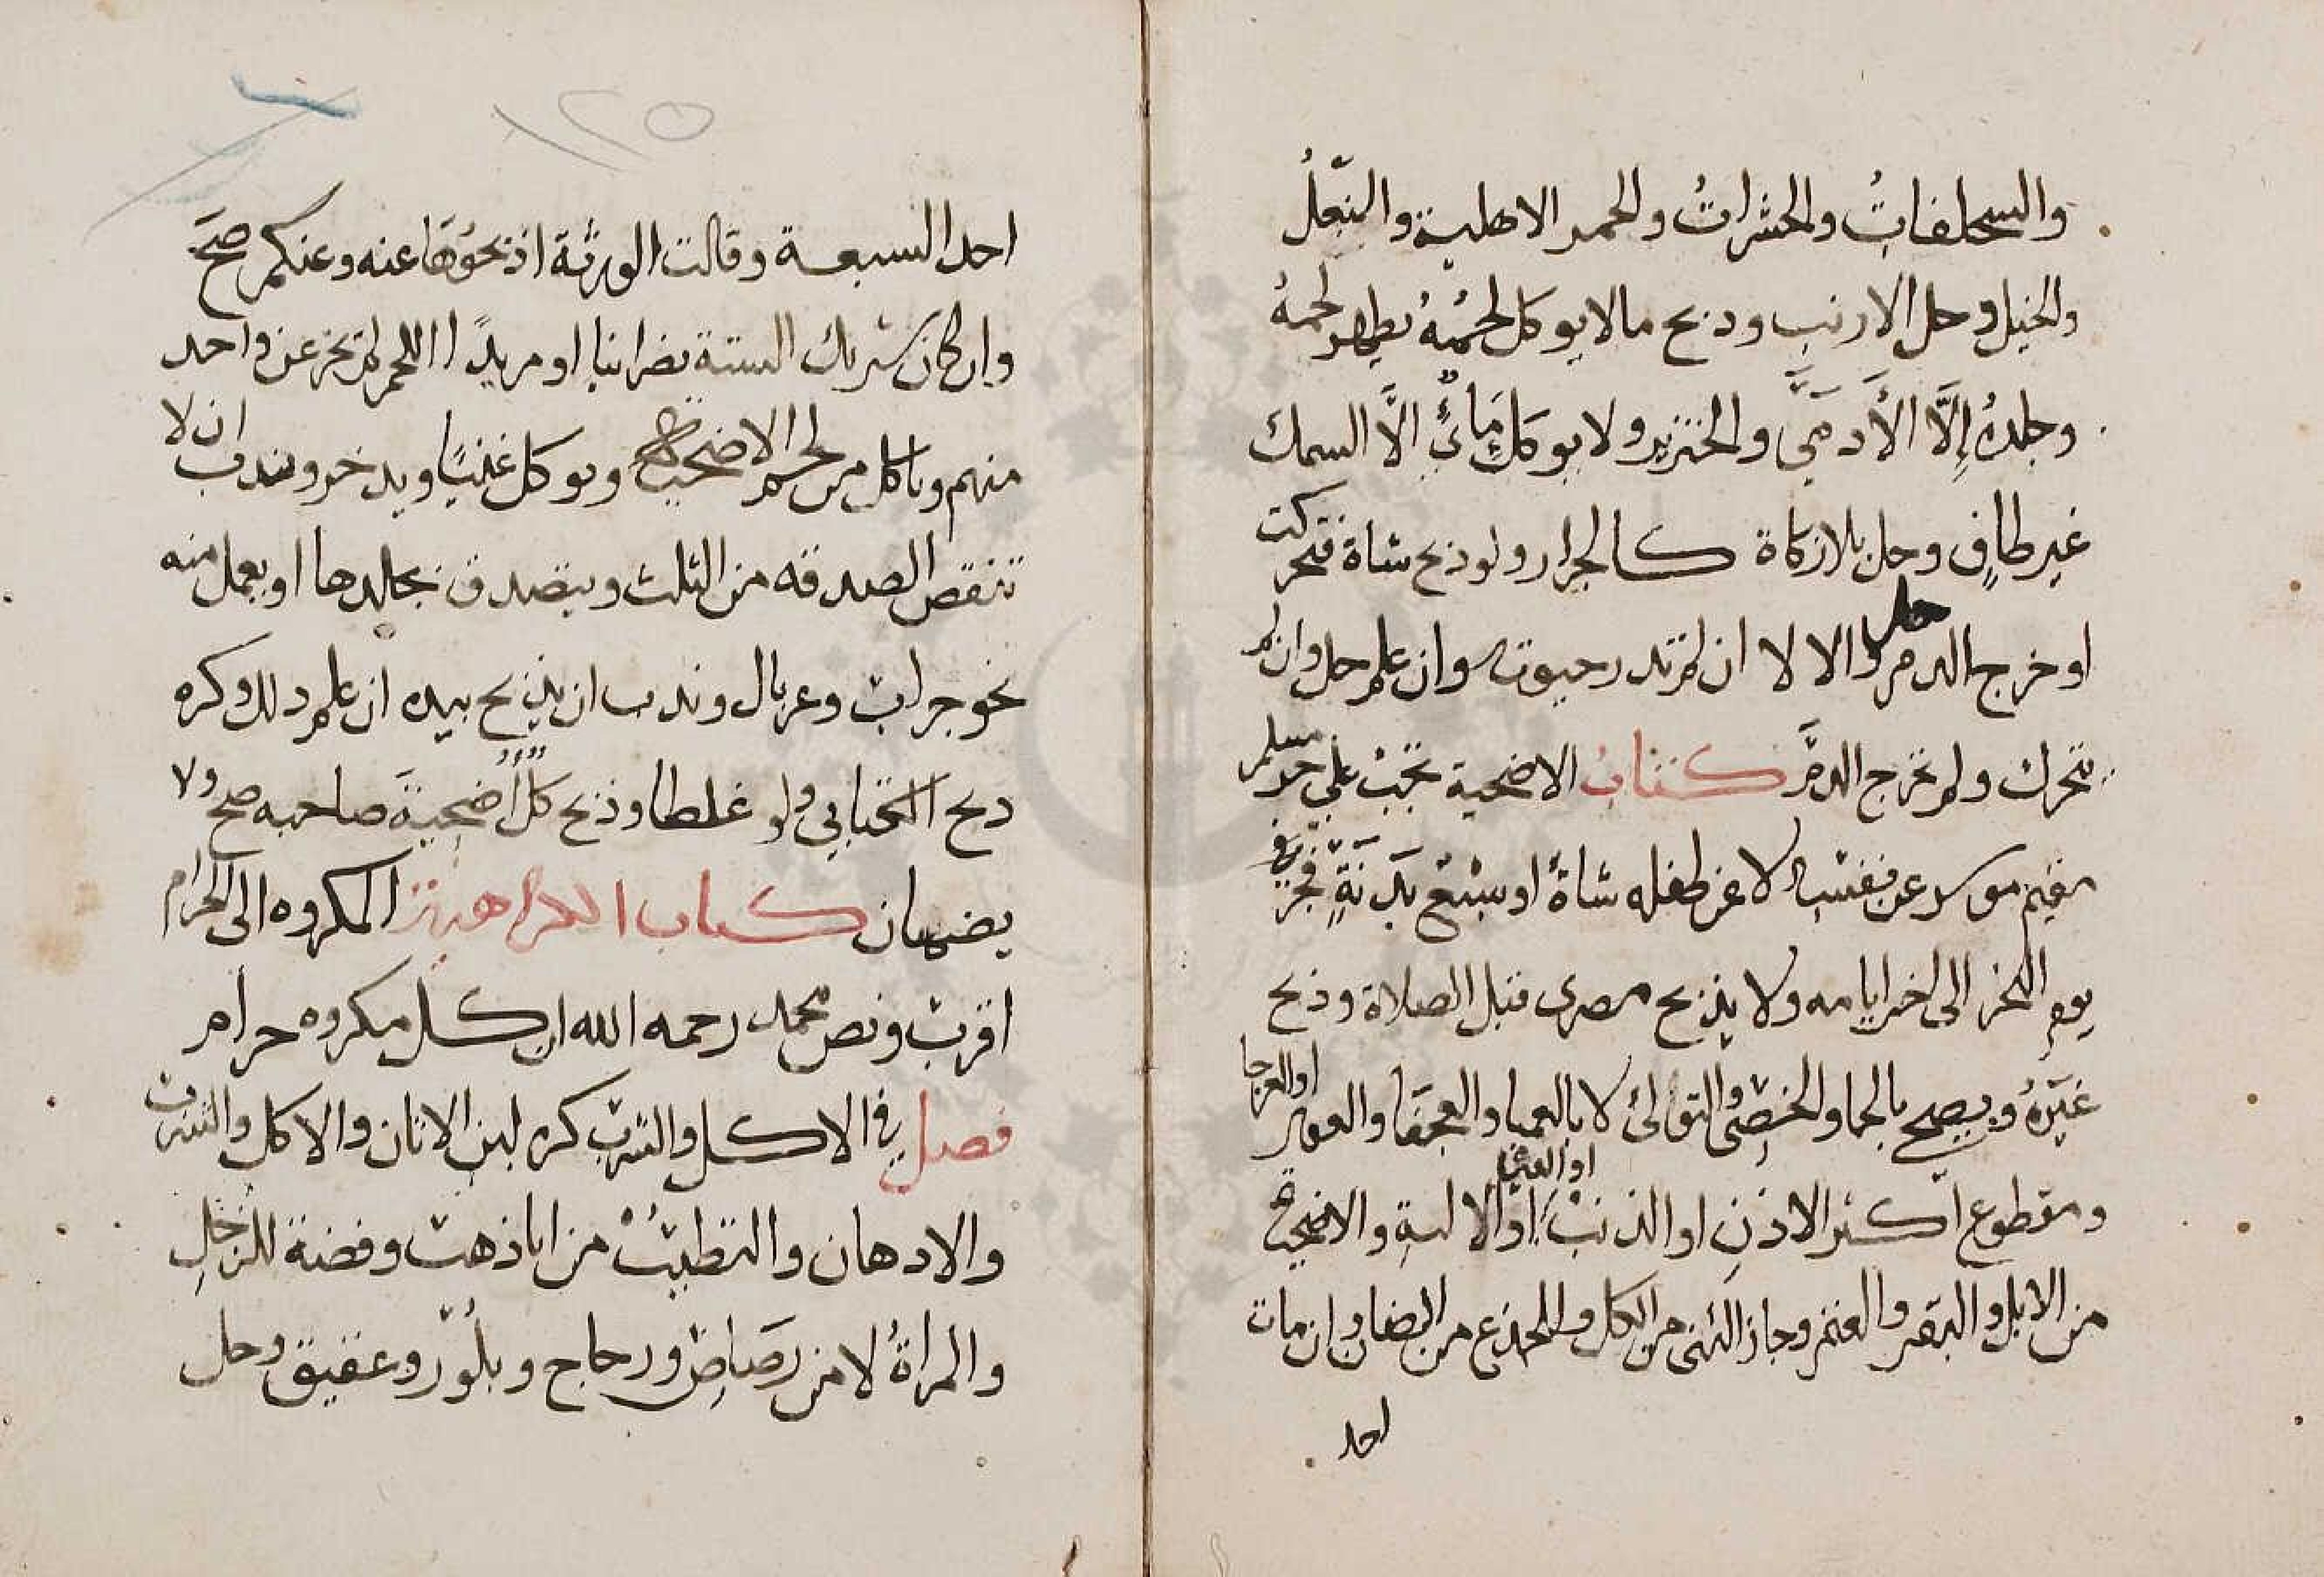 والسحلفاتُ والحشراتُ والحمر الاهلية والبغلُ
والخيل وحل الارنب وذبح مالايوكل لحمُهُ يطهر لحمهُ
وجلدهُ إلَّا الأَدَمَيَّ والخنزير ولا يوكل مَائيٌّ الَّا السمك
غير طافٍ وحل بلا ذكاة كالجراد ولو ذبح شاة فتحركت
او خرج الدم حل والا لا ان لم تدر حيوته وان علم حل وان لم
تتحرك ولم تخرج الدمَّ كتابُ الاضحية تجبُ علي حر مسلم
مقيم موسر عن نفسه لا عن طفله شاةٌ او سبع بَدَنَةٍ فجر
يوم النحر الى اخر ايامه ولا يذبح مصرى قبل الصلاة وذبح
غيَرهُ ويصح بالجما والخصي والتولئ لا بالعميا والعجفا والعورا او العرجا
ومقطوع اكثر الاذن او الذنب او العين او الالية والاضحية
من الابل والبقر والغنم وجاز الثنى من الكل والجذع من الضان وان مات
احد
١٢٥
احد السبعة وقالت الورثة اذبحوُهَا عنه وعنكم صَحَّ
وان كان شريك الستة نصرانيا او مريدًا اللحم لم تجز عن واحد
منهم وياكل من لحم الاضحية ويوكل غنيًا ويدخر وندب ان لا
تنقص الصدقه من الثلث ويتصدق بجلدها او يعمل منه
نحو جراب وغربال وندب ان يذبح بيده ان علم ذلك وكره
ذبح الكتابي ولو غلطا وذبح كلٌّ أُضحيةَ صاحبه صح ولا
يضمنان كتاب الكراهية المكروه الى الحرام
اقرب ونص محمد رحمه الله ان كل مكروه حرام
فصل في الاكل والشرب كره لبن الاتان والاكل والشرب
والادهان والتطيبُ من انا ذهب وفضة للرجلِ
والمراةُ لا من رَصَاصٍ وزجاج وبلُّور وعقيق وحل